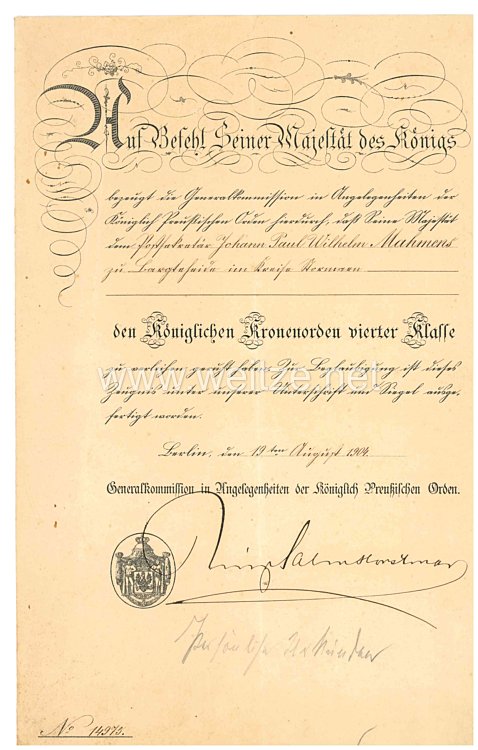 Auf Befehl Seiner Majestät des Königs
bezeugt die Generalkommission in Angelegenheiten der
Königlich Preußischen Orden hierdurch, daß Seine Majestät
dem Postsekretär Johann Paul Wilhelm Mahmens
zu Bargteheide im Kreise Stormarn
den Königlichen Kronenorden vierter Klasse
zu verleihen geruht haben. Zur Beglaubigung ist dieses
www.weitze.net
Zeugnis unter unserer Unterschrift und Siegel ausge,
fertigt worden.
Berlin, den 19ten August 1904.
Generalkommission in Angelegenheiten der Königlich Preußischen Orden.
Salm Horstmar
Persönliche Urkunden
No 14973.